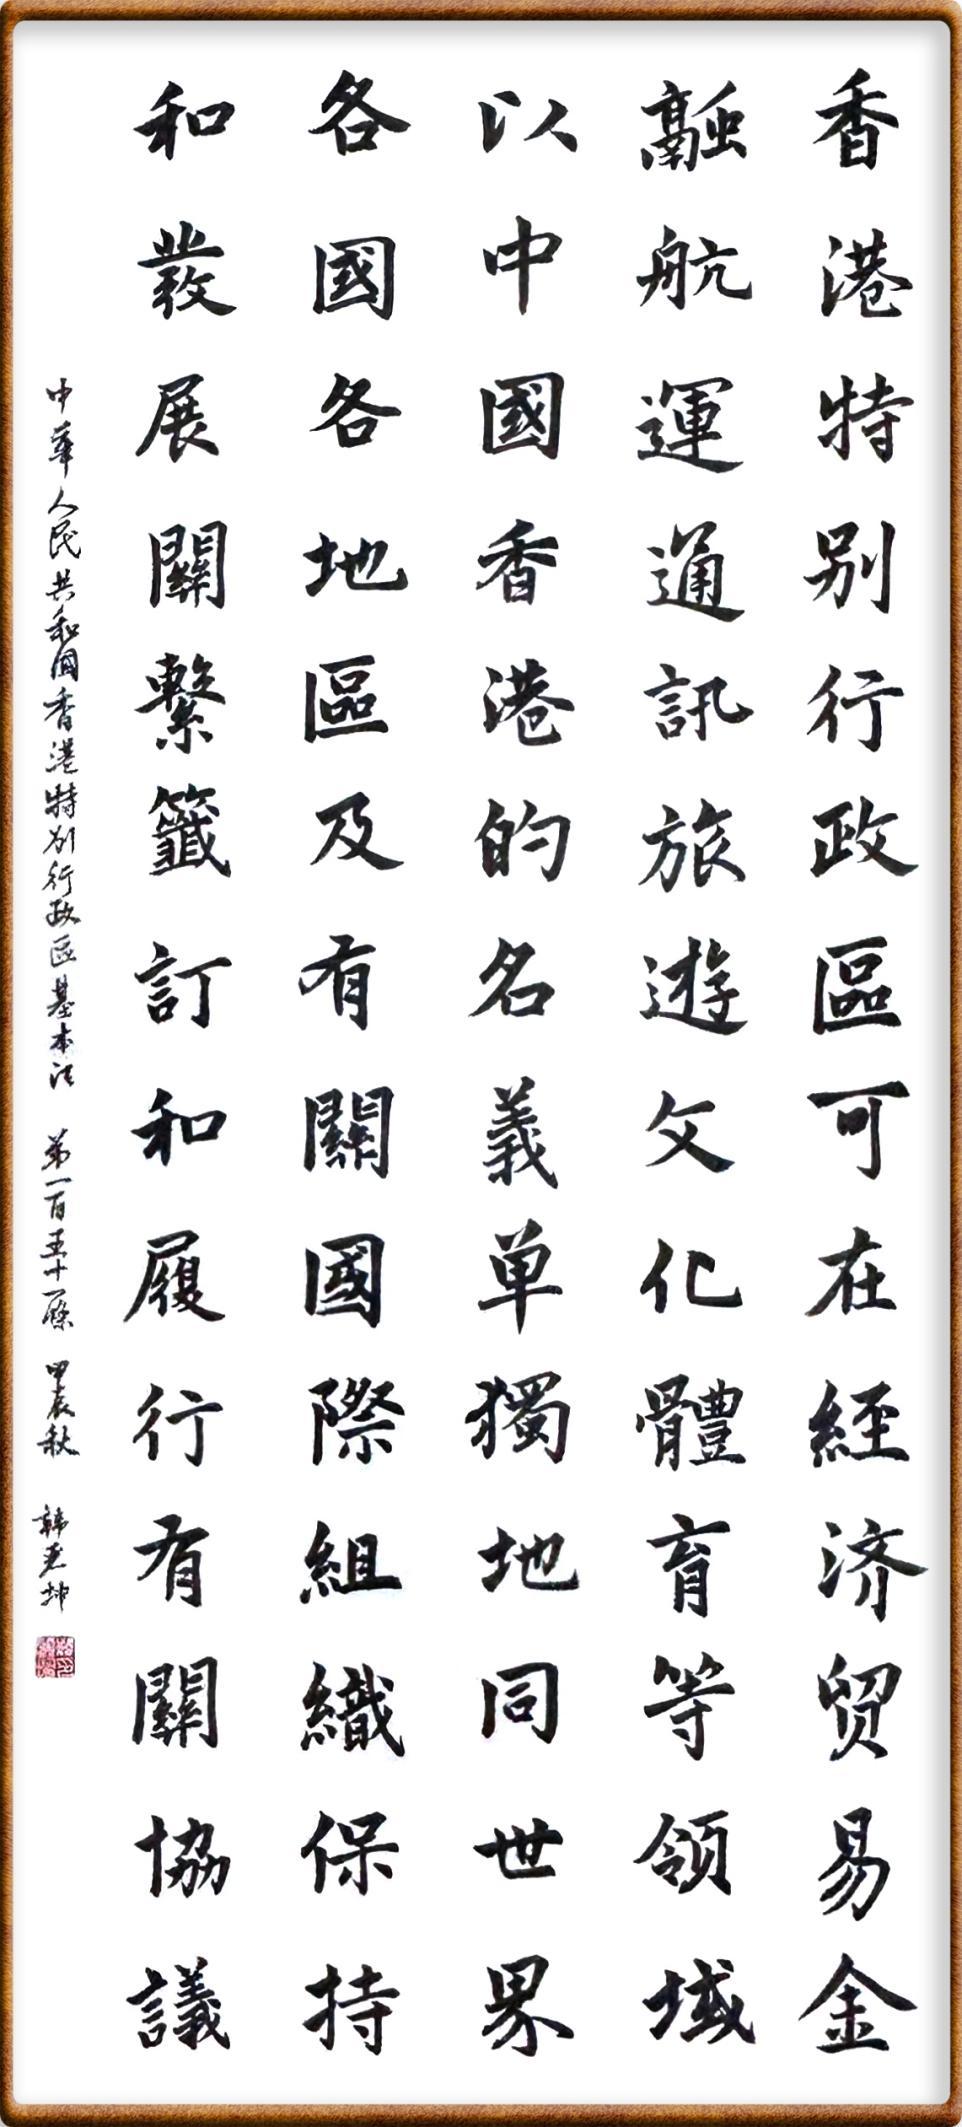 香港特别行政區可在経济贸易金
融航運通訊旅遊文化體育等領域
以中國香港的名義单獨地同世界
各國各地區及有關國際組織保持
和發展關繫籤訂和履行有關協議
中華人民共和国香港特别行政區基本法 第一百五十一條 甲辰秋